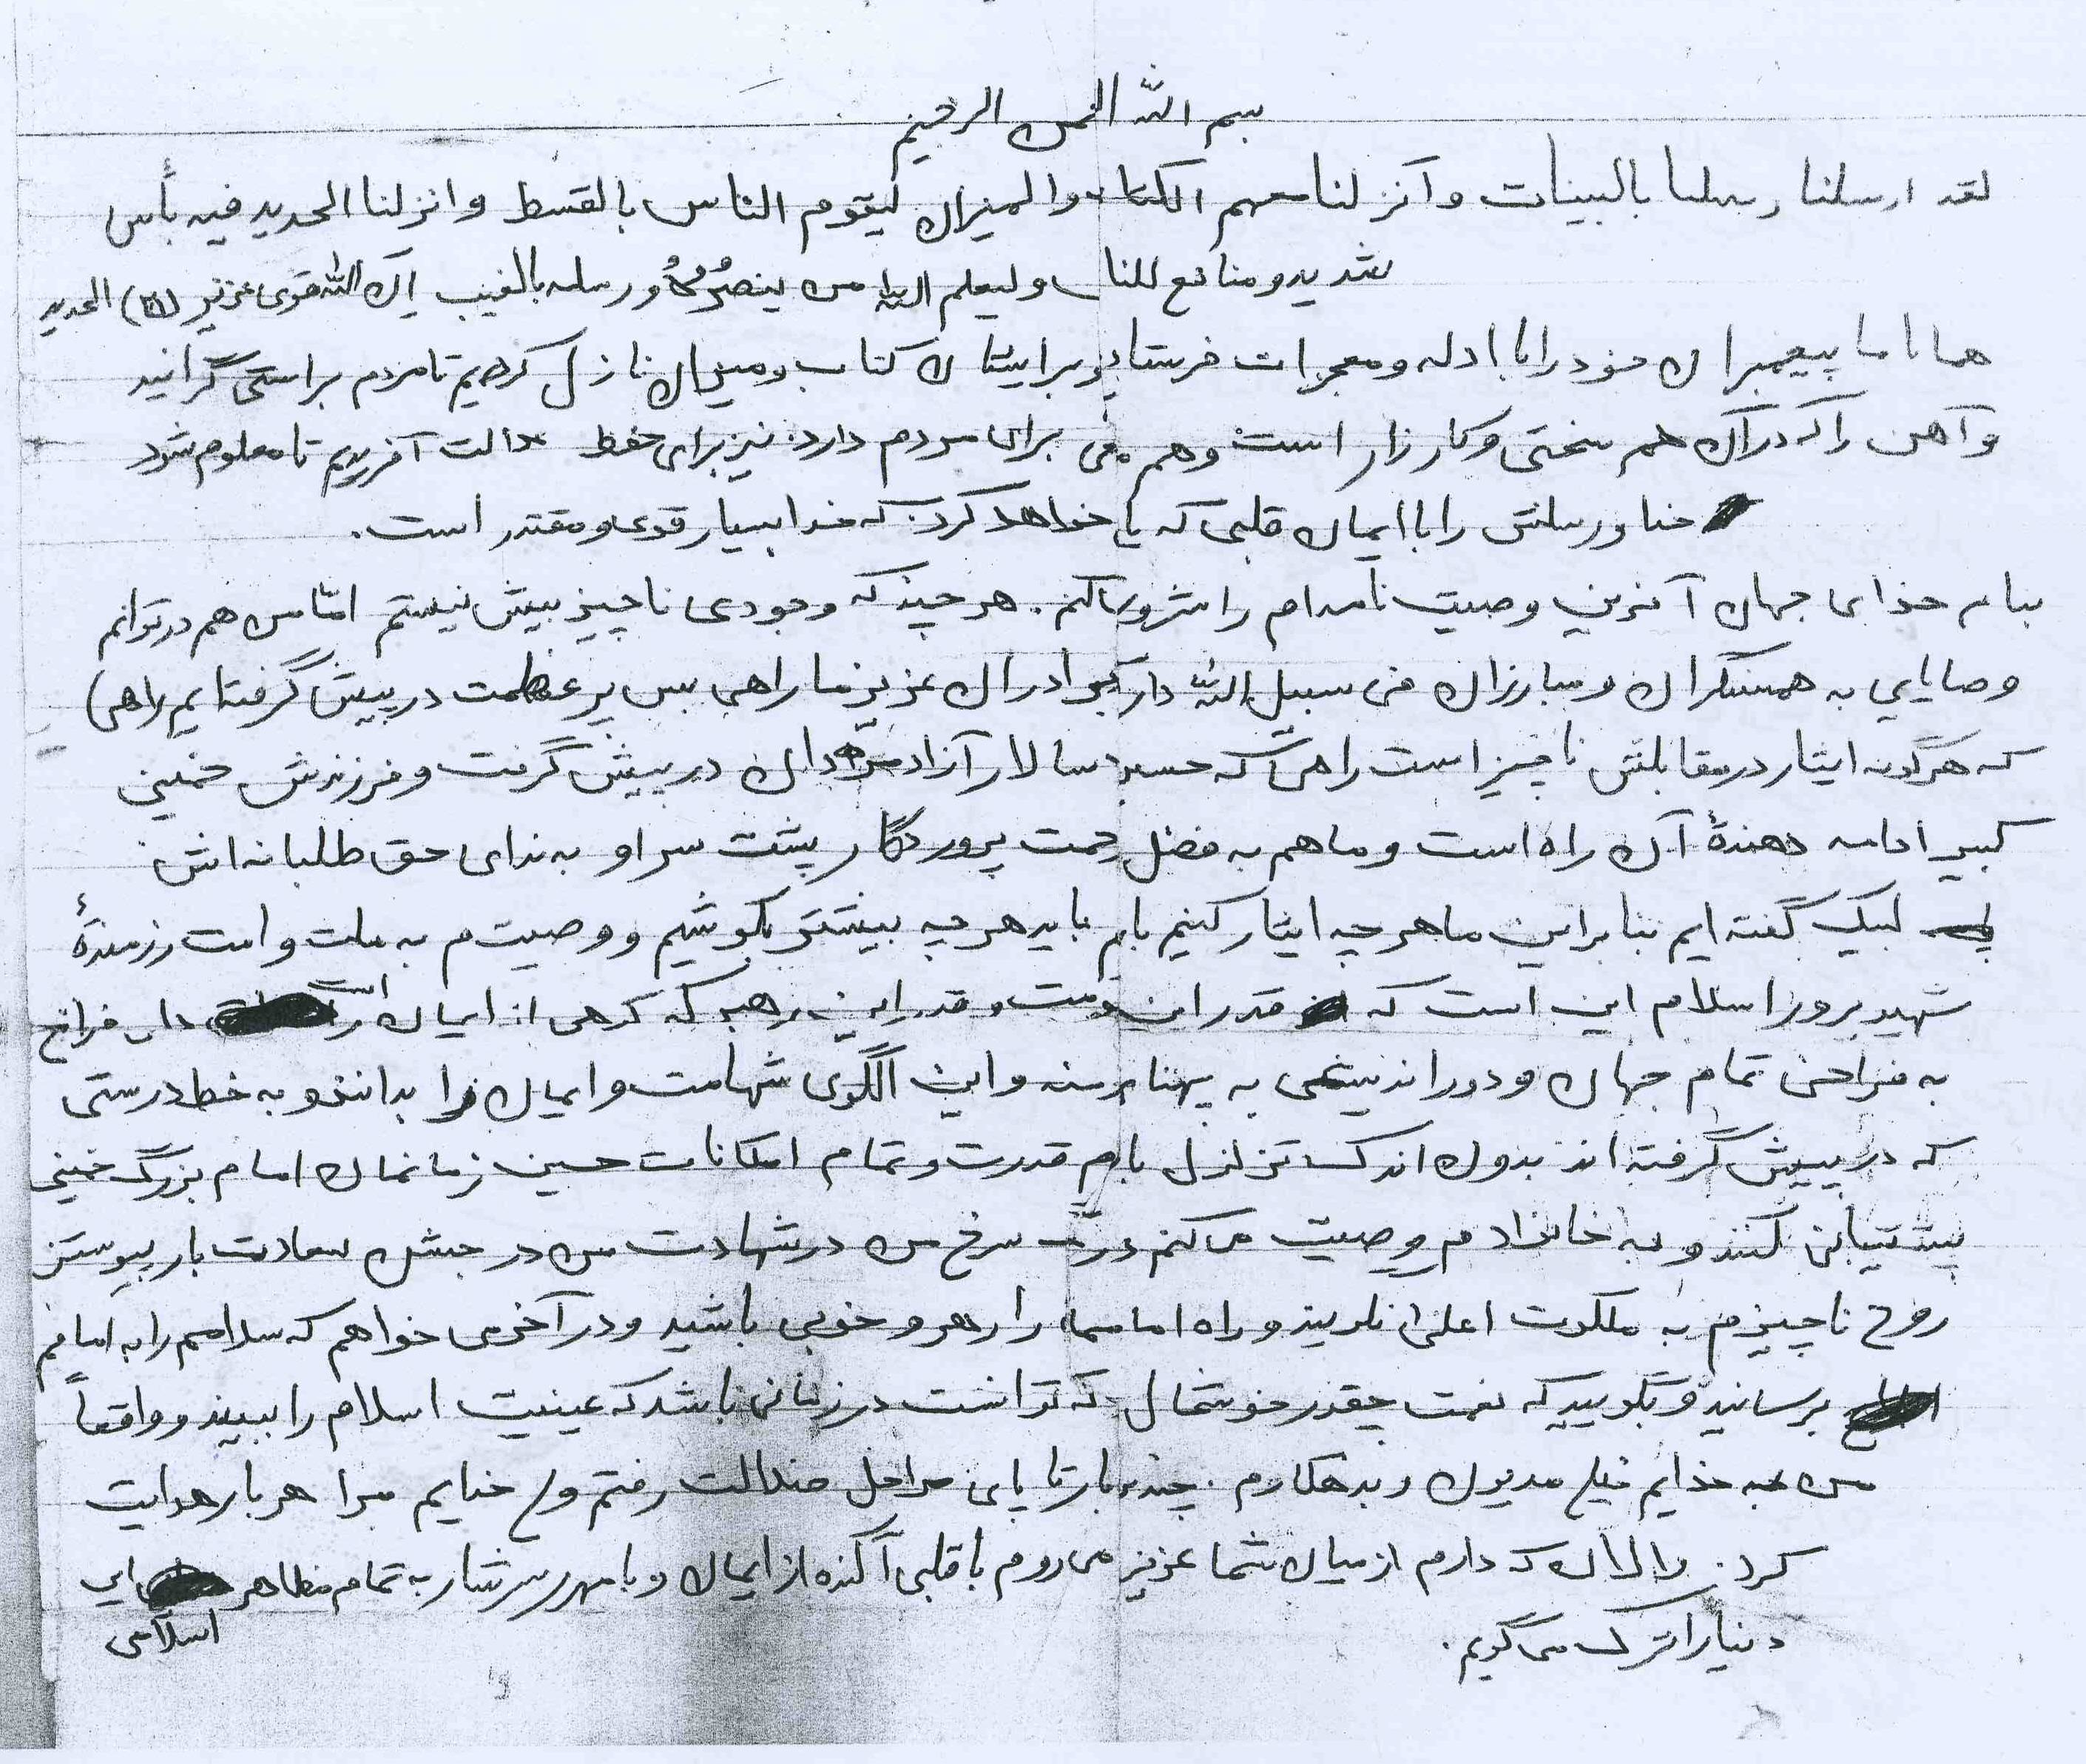 بسم الله الرحمن الرحیم
لقد ارسلنا رسلنا بالبینات و آنزلنا معهم الکتاب والمیزان لیقوم الناس بالقسط و انزلنا الحدید فیه بأس
شدید و منافع للناس و لیعلم الله من ینصُرُهُ و رسله بالغیب إن الله قوی عزیز الحدید
همانا ما پیغمبران خود را با ادله و معجزات فرستادیم و برایشان کتاب و میزان نازل کردیم تا مردم براستی گرایند
و آهن را که در آن هم سختی و کارزار است و هم برای مردم دارد نیز برای حفظ عدالت آفریدیم تا معلوم شود
خدا و رسلش را با ایمان قلبی که یاری خواهد کرد که خدا بسیار قوی و مقتدر است.
بنام خدای جهان آفرین وصیت نامه‌ام را شروع میکنم. هر چند که وجودی ناچیز بیش نیستم امّا من هم در توانم
وصایایی به همسنگران و مبارزان فی سبیل الله دارم برادران عزیز ما راهی بس پر عظمت در پیش گرفته‌ایم راهی
که هرگونه ایثار در مقابلش ناچیز است راهی که حسین سالار آزاد مردان در پیش گرفت و فرزندش خمینی
کبیر ادامه دهندهٔ آن راه است و ما هم به فضل رحمت پروردگار پشت سر او به ندای حق طلبانه‌اش
لبیک گفته ایم بنابراین ما هرچه ایثار کنیم باید هر چه بیشتر بکوشیم و وصیتم به ملت و امت رزمندهٔ
شهید پرور اسلام این است که قدر این و قدر این رهبر که کوهی از ایمان است
به فراخی تمام جهان و دور اندیشی به پهنا و این الگوی شهامت و ایمان را بدانند و به خط درستی
که در پیش گرفته اند بدون اندک تزلزل با قدرت و تمام امکانات حسین زمانمان امام بزرگ خمینی
پشتیبانی کنند و به خانواده‌م وصیت می کنم مرگ سرخ من در شهادت من در جشن سعادت بار پیوستن
روح ناچیزم به ملکوت اعلی و راه امام را رهرو خوبی باشید و در آخر می خواهم که سلامم را به امامم
برسانید و بگویید که چقدر خوشحال که توانست در زمانی باشد که عینیت اسلام را ببیند و واقعاً
من به خدایم خیلی مدیون و بدهکارم. چندبار تا پای مراحل ضلالت رفتم ولی خدایم مرا هر بار هدایت
کرد. و الان که دارم از میان شما عزیز می روم با قلبی آکنده از ایمان و با مهر سرشار به تمام مظاهر این
دنیا را ترک می گویم. اسلامی